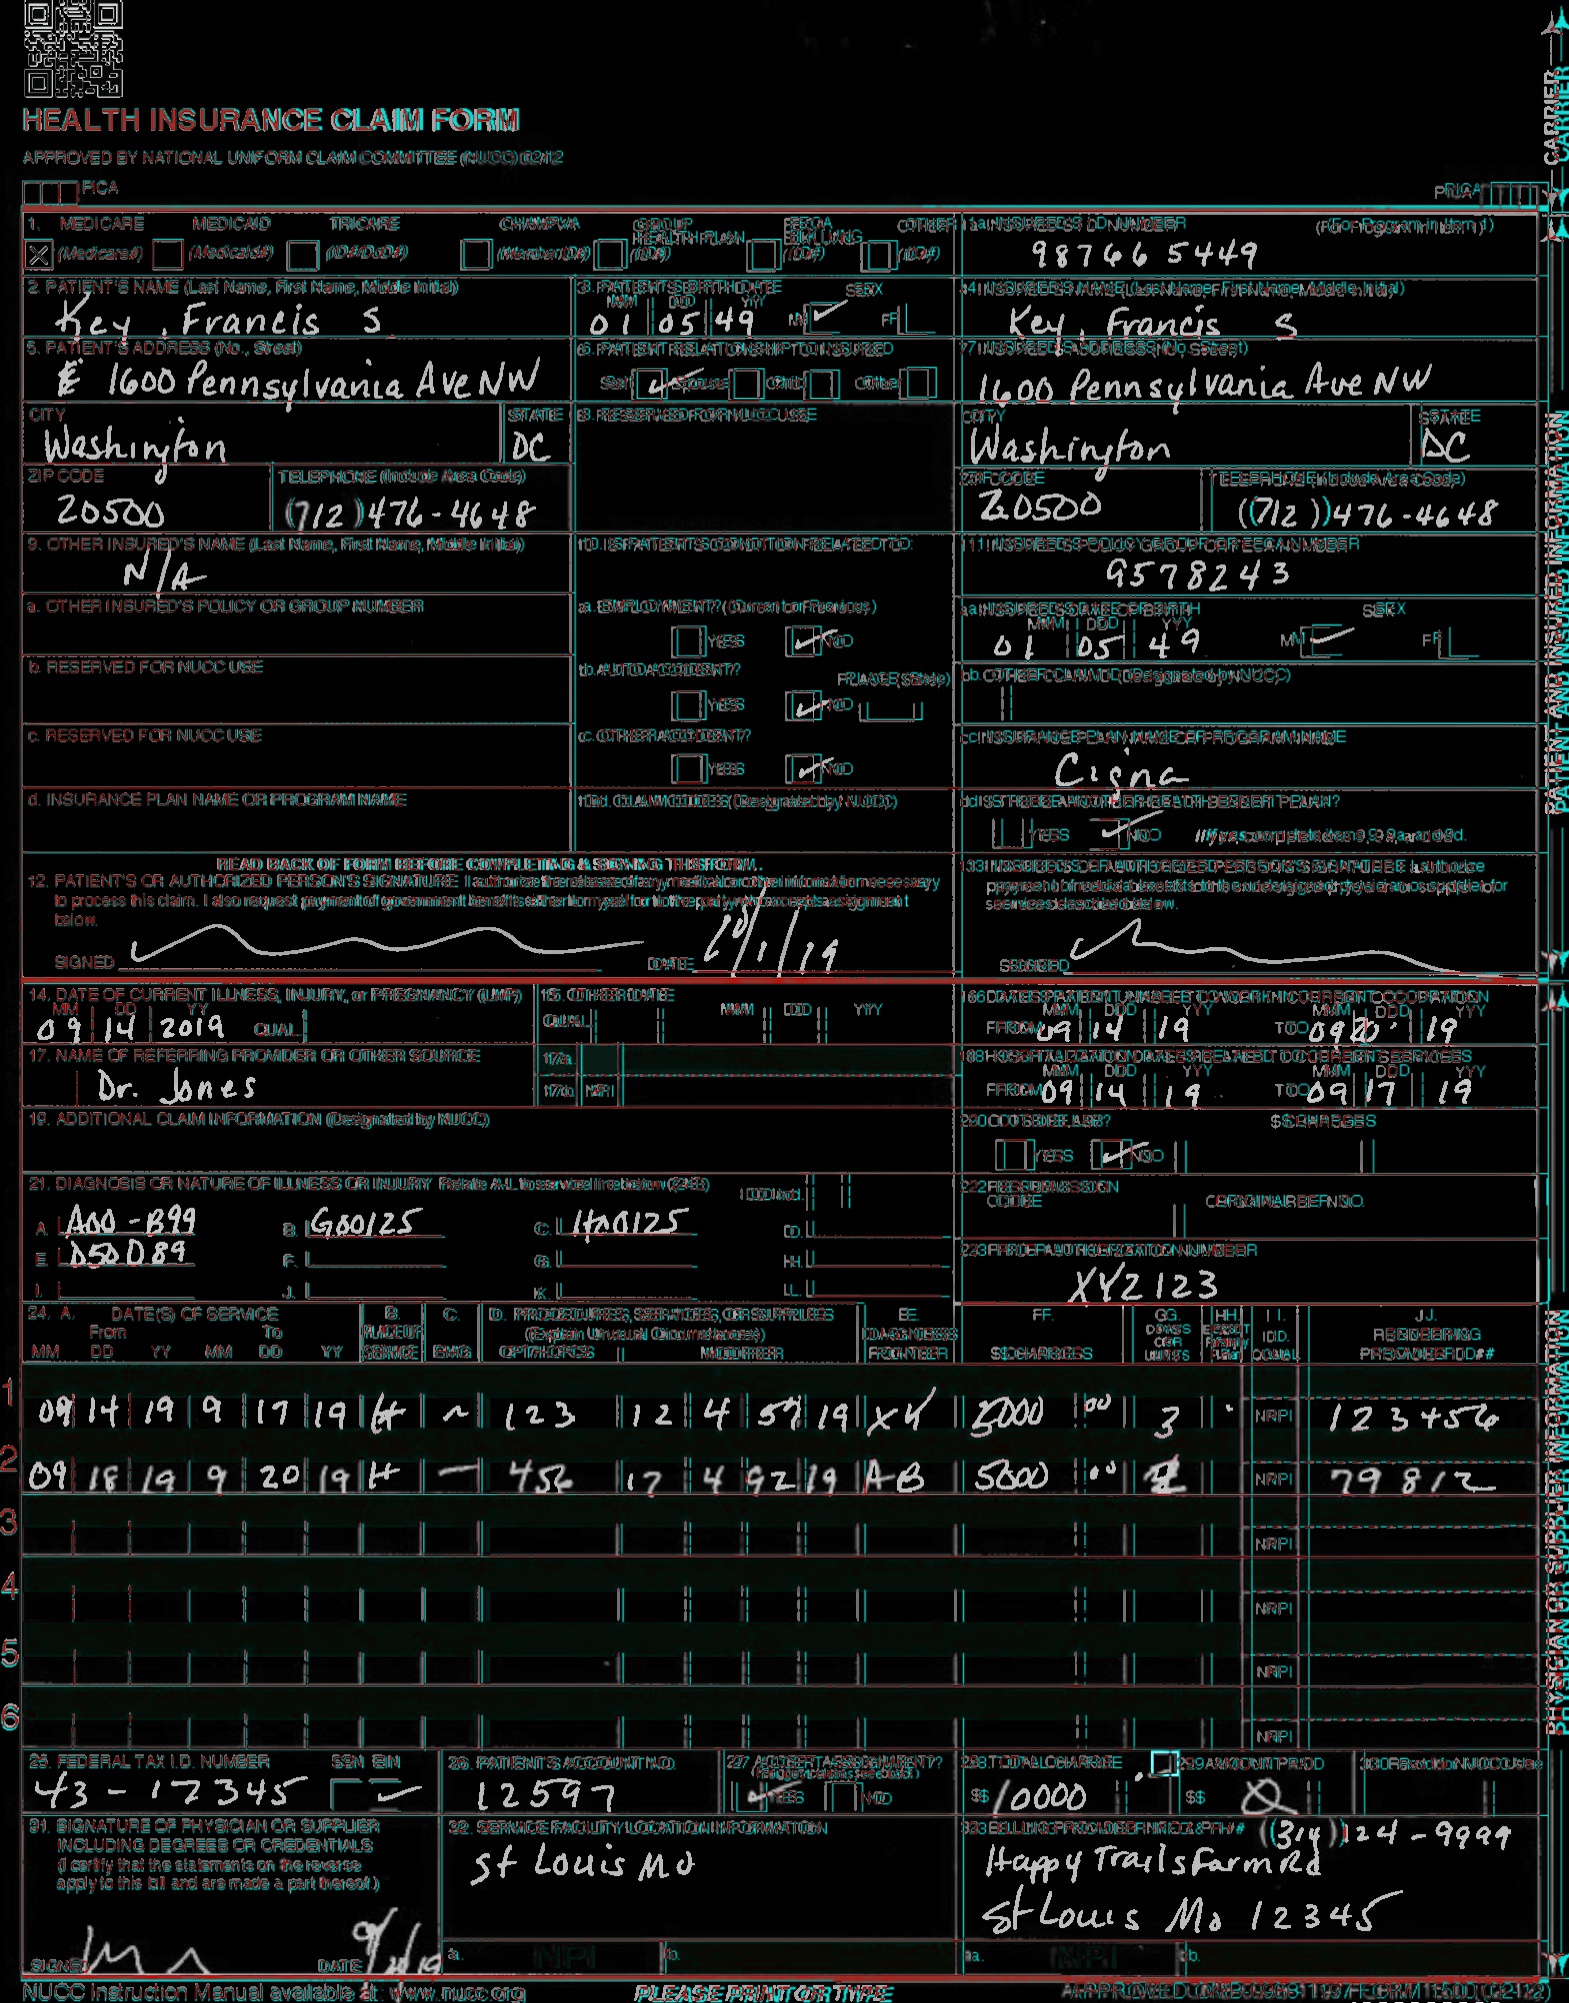 HEALTH INSURANCE CLAIM FORM
APPROVED BY NATIONAL UNIFORM CLAIM COMMITTEE (NUCC) 02/12
PICA
PICA
CARRIER
1. MEDICARE MEDICAID TRICARE CHAMPVA GROUP HEALTH PLAN FECA BLK LUNG OTHER
(Medicare#) (Medicaid#) (ID#/DoD#) (Member ID#) (ID#) (ID#) (ID#)
1a. INSURED'S I.D. NUMBER (For Program in Item 1)
98766 5449
2. PATIENT'S NAME (Last Name, First Name, Middle Initial)
Key, Francis S
3. PATIENT'S BIRTH DATE SEX
MM DD YY
01 05 49 M F
4. INSURED'S NAME (Last Name, First Name, Middle Initial)
Key, Francis S
5. PATIENT'S ADDRESS (No., Street)
1600 Pennsylvania Ave NW
6. PATIENT RELATIONSHIP TO INSURED
Self Spouse Child Other
7. INSURED'S ADDRESS (No., Street)
1600 Pennsylvania Ave NW
CITY STATE
Washington DC
8. RESERVED FOR NUCC USE
CITY STATE
Washington DC
ZIP CODE TELEPHONE (Include Area Code)
20500 (712) 476-4648
ZIP CODE TELEPHONE (Include Area Code)
20500 (712) 476-4648
9. OTHER INSURED'S NAME (Last Name, First Name, Middle Initial)
N/A
10. IS PATIENT'S CONDITION RELATED TO:
11. INSURED'S POLICY GROUP OR FECA NUMBER
9578243
a. OTHER INSURED'S POLICY OR GROUP NUMBER
a. EMPLOYMENT? (Current or Previous)
YES NO
a. INSURED'S DATE OF BIRTH SEX
MM DD YY
01 05 49 M F
b. RESERVED FOR NUCC USE
b. AUTO ACCIDENT? PLACE (State)
YES NO
b. OTHER CLAIM ID (Designated by NUCC)
c. RESERVED FOR NUCC USE
c. OTHER ACCIDENT?
YES NO
c. INSURANCE PLAN NAME OR PROGRAM NAME
Cigna
d. INSURANCE PLAN NAME OR PROGRAM NAME
10d. CLAIM CODES (Designated by NUCC)
d. IS THERE ANOTHER HEALTH BENEFIT PLAN?
YES NO If yes, complete items 9, 9a, and 9d.
READ BACK OF FORM BEFORE COMPLETING & SIGNING THIS FORM.
12. PATIENT'S OR AUTHORIZED PERSON'S SIGNATURE I authorize the release of any medical or other information necessary
to process this claim. I also request payment of government benefits either to myself or to the party who accepts assignment
below.
SIGNED DATE 10/1/19
13. INSURED'S OR AUTHORIZED PERSON'S SIGNATURE I authorize
payment of medical benefits to the undersigned physician or supplier for
services described below.
SIGNED
PATIENT AND INSURED INFORMATION
14. DATE OF CURRENT ILLNESS, INJURY, or PREGNANCY (LMP)
MM DD YY
09 14 2019 QUAL.
15. OTHER DATE
QUAL. MM DD YY
16. DATES PATIENT UNABLE TO WORK IN CURRENT OCCUPATION
MM DD YY MM DD YY
FROM 09 14 19 TO 09 20 19
17. NAME OF REFERRING PROVIDER OR OTHER SOURCE
Dr. Jones
17a.
17b. NPI
18. HOSPITALIZATION DATES RELATED TO CURRENT SERVICES
MM DD YY MM DD YY
FROM 09 14 19 TO 09 17 19
19. ADDITIONAL CLAIM INFORMATION (Designated by NUCC)
20. OUTSIDE LAB? $ CHARGES
YES NO
21. DIAGNOSIS OR NATURE OF ILLNESS OR INJURY Relate A-L to service line below (24E) ICD Ind.
A. A00-B99 B. G00125 C. H00125 D.
E. D50D89 F. G. H.
I. J. K. L.
22. RESUBMISSION CODE ORIGINAL REF. NO.
23. PRIOR AUTHORIZATION NUMBER
XYZ123
24. A. DATE(S) OF SERVICE B. C. D. PROCEDURES, SERVICES, OR SUPPLIES E. F. G. H. I. J.
From To PLACE OF (Explain Unusual Circumstances) DIAGNOSIS DAYS OR EPSDT ID. RENDERING
MM DD YY MM DD YY SERVICE EMG CPT/HCPCS MODIFIER POINTER $ CHARGES UNITS Family Plan QUAL. PROVIDER ID. #
1 09 14 19 9 17 19 H ~ 123 12 4 57 19 XY 5000 00 3 NPI 123456
2 09 18 19 9 20 19 H — 456 17 4 92 19 AB 5000 00 NPI 79812
3 NPI
4 NPI
5 NPI
6 NPI
PHYSICIAN OR SUPPLIER INFORMATION
25. FEDERAL TAX I.D. NUMBER SSN EIN
43-17345
26. PATIENT'S ACCOUNT NO.
12597
27. ACCEPT ASSIGNMENT?
(For govt. claims, see back)
YES NO
28. TOTAL CHARGE
$ 10000
29. AMOUNT PAID
$ 0
30. Rsvd for NUCC Use
31. SIGNATURE OF PHYSICIAN OR SUPPLIER
INCLUDING DEGREES OR CREDENTIALS
(I certify that the statements on the reverse
apply to this bill and are made a part thereof.)
SIGNED DATE
32. SERVICE FACILITY LOCATION INFORMATION
St Louis Mo
a. NPI b.
33. BILLING PROVIDER INFO & PH # (314) 124-9999
Happy Trails Farm Rd
St Louis Mo 12345
a. NPI b.
NUCC Instruction Manual available at: www.nucc.org
PLEASE PRINT OR TYPE
APPROVED OMB-0938-1197 FORM 1500 (02-12)